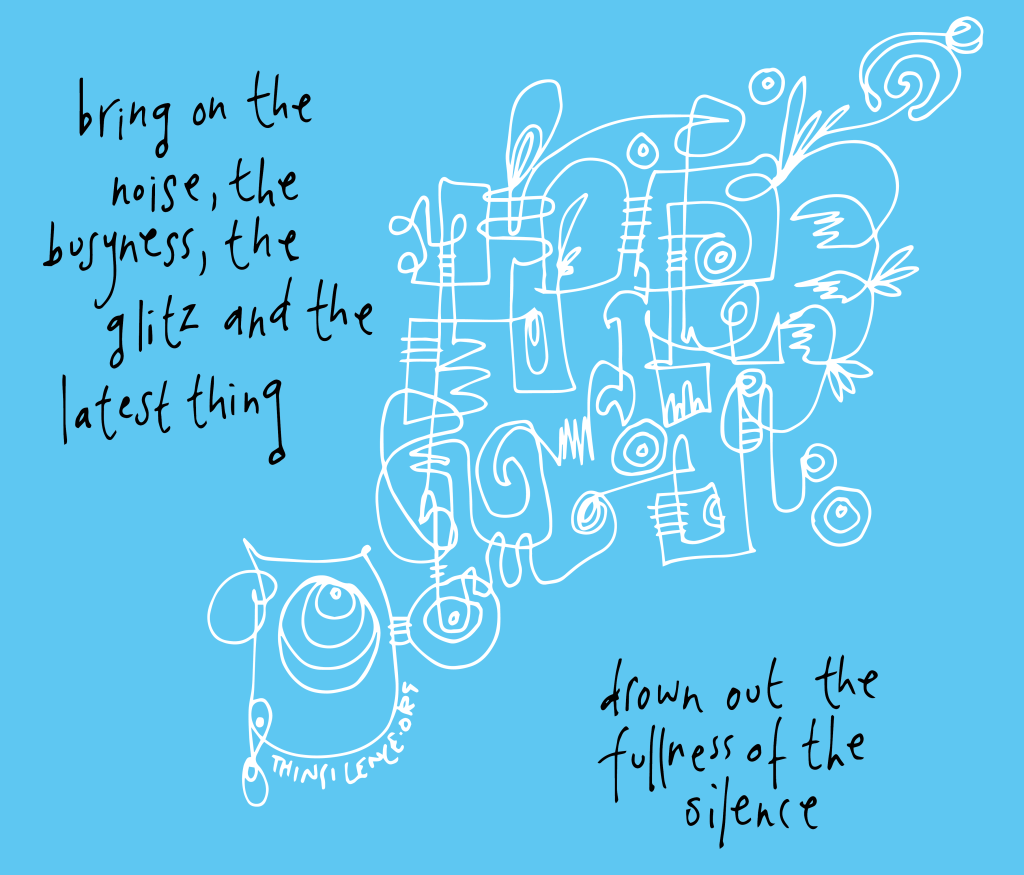 bring on the
noise, the
busyness, the
glitz and the
latest thing
THINSILENCE.ORG
drown out the
fullness of the
silence